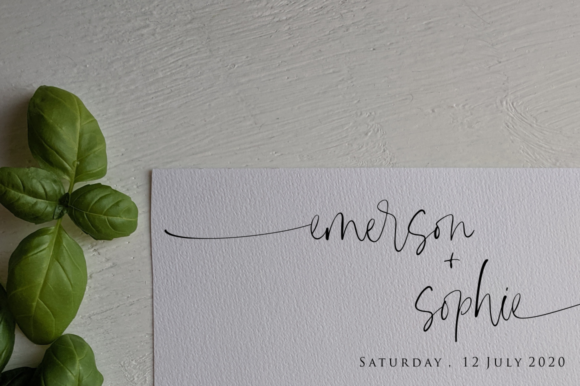 emerson
+
sophie
SATURDAY . 12 JULY 2020